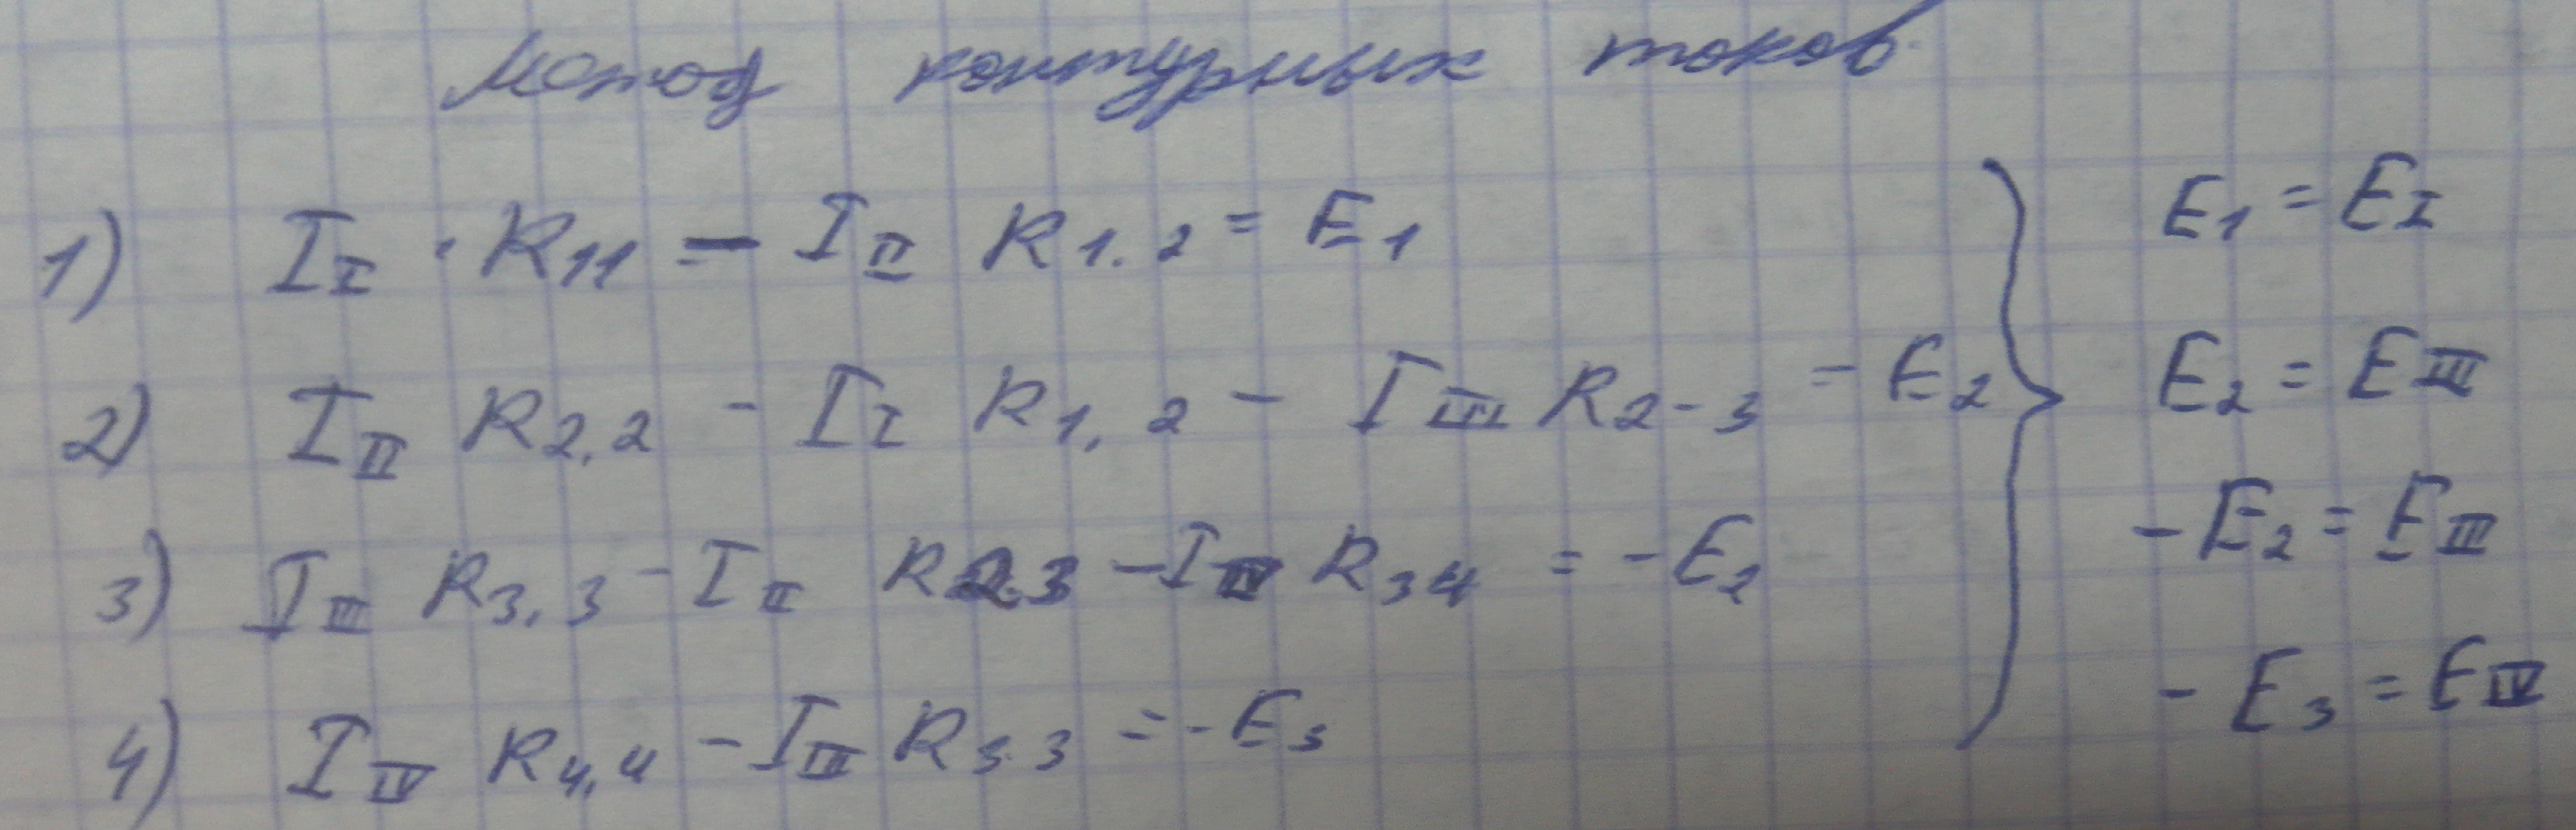 Метод контурных токов
1) I_I · R_11 — I_II R_1.2 = E_1
2) I_II R_2,2 - I_I R_1,2 - I_III R_2-3 = E_2
3) I_III R_3,3 - I_II R_2.3 - I_IV R_34 = -E_2
4) I_IV R_4,4 - I_III R_3.3 = -E_3
E_1 = E_I
E_2 = E_III
-E_2 = E_III
-E_3 = E_IV